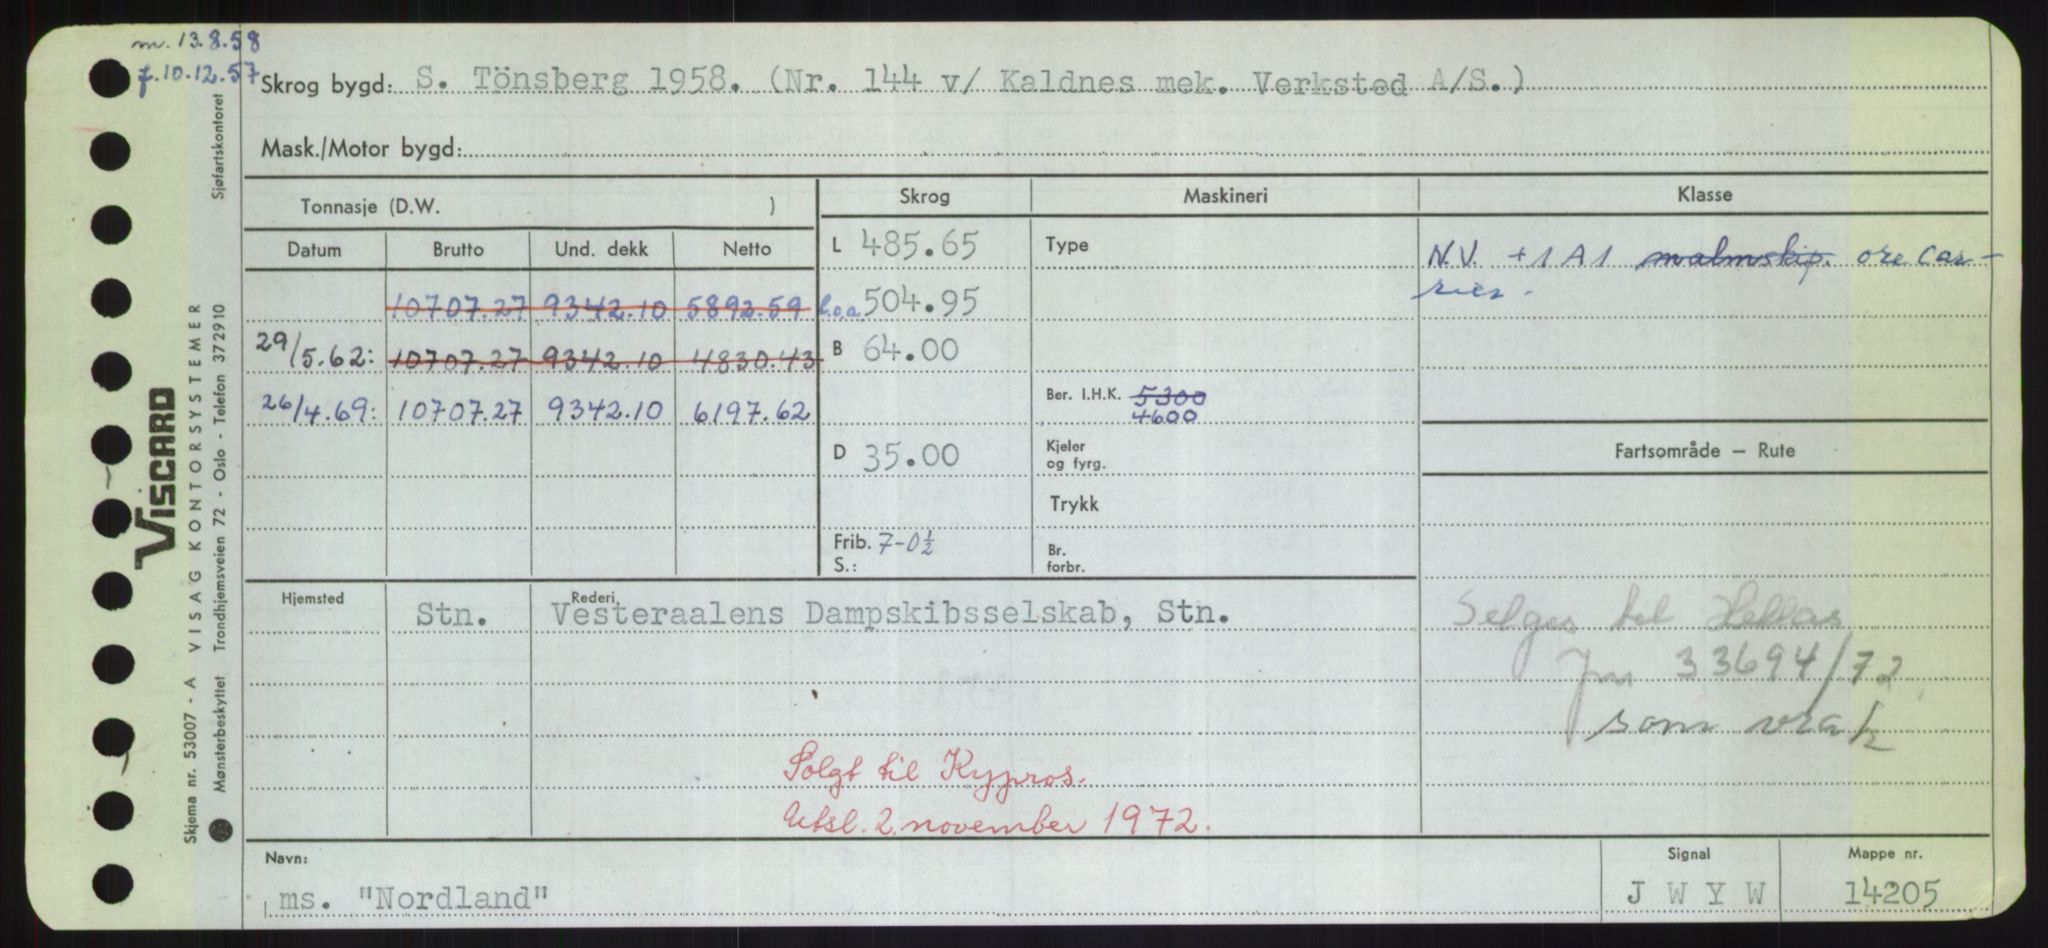 m. 13.8.58
f. 10.12.57
Skrog bygd: S. Tönsberg 1958. (Nr. 144 v/ Kaldnes mek. Verksted A/S.)
Mask./Motor bygd:
Tonnasje (D.W. )
Skrog Maskineri Klasse
Datum Brutto Und. dekk Netto
L 485.65
Type
N.V. +1A1 malmskip. ore car-
rier.
10707.27 9342.10 5892.59
l.o.a. 504.95
29/5.62: 10707.27 9342.10 4830.43
B 64.00
26/4.69: 10707.27 9342.10 6197.62
Ber. I.H.K. 5300
4600
D 35.00
Kjeler
og fyrg.
Fartsområde — Rute
Trykk
Frib. 7-0½
S.:
Br.
forbr.
Hjemsted Rederi
Stn. Vesteraalens Dampskibsselskab, Stn.
Selges til Hellas
Jnr 33694/72
som vrak
Solgt til Kypros.
Utsl. 2. november 1972.
Navn: Signal Mappe nr.
ms. "Nordland" J W Y W 14205
VISCARD
Skjema nr. 53007 - A VISAG KONTORSYSTEMER
Mønsterbeskyttet Trondhjemsveien 72 - Oslo - Telefon 372910 Sjøfartskontoret